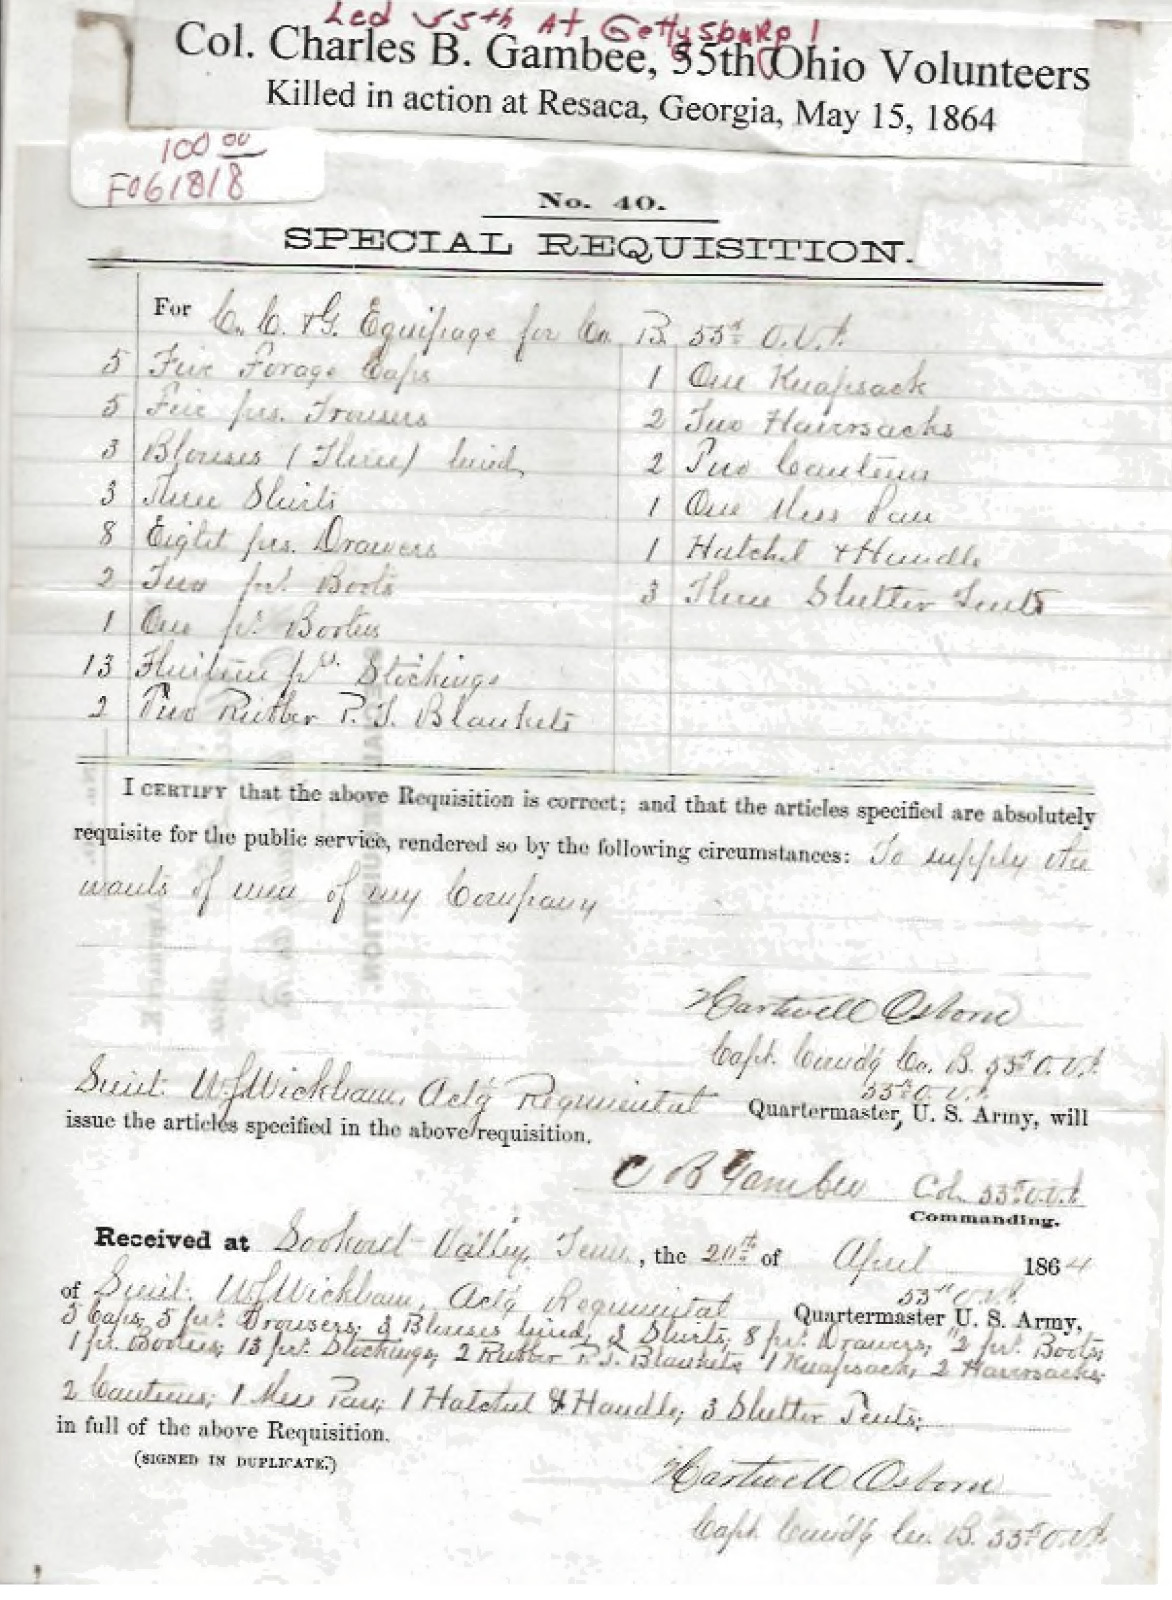 Led 55th At Gettysburg!
Col. Charles B. Gambee, 55th Ohio Volunteers
Killed in action at Resaca, Georgia, May 15, 1864
100 00
F061818
No. 40.
SPECIAL REQUISITION.
For C. C. & G. Equipage for Co. B. 55th O.V.I.
5 Five Forage Caps
5 Five prs. Trousers
3 Blouses (Three) lined
3 Three Shirts
8 Eight prs. Drawers
2 Two prs. Boots
1 One pr. Bootees
13 Thirteen prs. Stockings
2 Two Rubber P. T. Blankets
1 One Knapsack
2 Two Haversacks
2 Two Canteens
1 One Mess Pan
1 Hatchet & Handle
3 Three Shelter Tents
I CERTIFY that the above Requisition is correct; and that the articles specified are absolutely
requisite for the public service, rendered so by the following circumstances: To supply the
wants of men of my Company
Hartwell Osborn
Capt. Comdg Co. B. 55th O.V.I.
Lieut. W. Wickham, Actg Regimental 55th O.V.I. Quartermaster, U. S. Army, will
issue the articles specified in the above requisition.
C B Gambee Col. 55th O.V.I.
Commanding.
Received at Lookout Valley, Tenn., the of April 1864
of Lieut. W. Wickham, Actg Regimental 55th O.V.I. Quartermaster U. S. Army,
5 Caps, 5 prs. Trousers; 3 Blouses lined, 3 Shirts; 8 prs. Drawers, 2 prs. Boots;
1 pr. Bootees; 13 prs. Stockings; 2 Rubber P. T. Blankets, 1 Knapsack, 2 Haversacks;
2 Canteens; 1 Mess Pan; 1 Hatchet & Handle; 3 Shelter Tents;
in full of the above Requisition.
(SIGNED IN DUPLICATE.)
Hartwell Osborn
Capt. Comdg Co. B. 55th O.V.I.